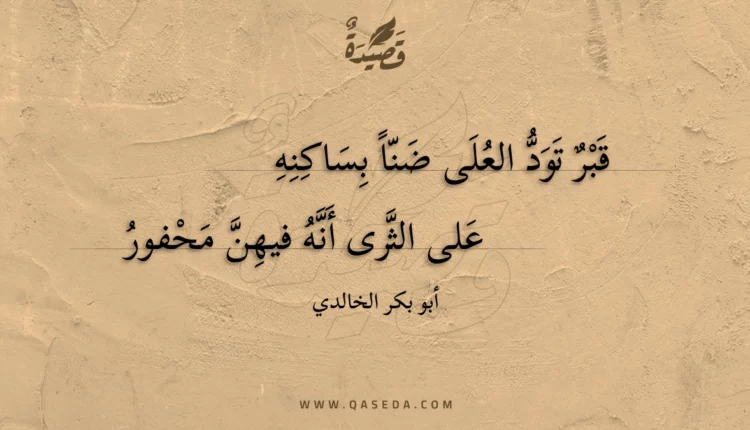 قَصِيْدَةٌ
قَبْرٌ تَوَدُّ العُلَى ضَنّاً بِسَاكِنِهِ
عَلى الثَّرى أَنَّهُ فيهِنَّ مَحْفورُ
أبو بكر الخالدي
WWW.QASEDA.COM